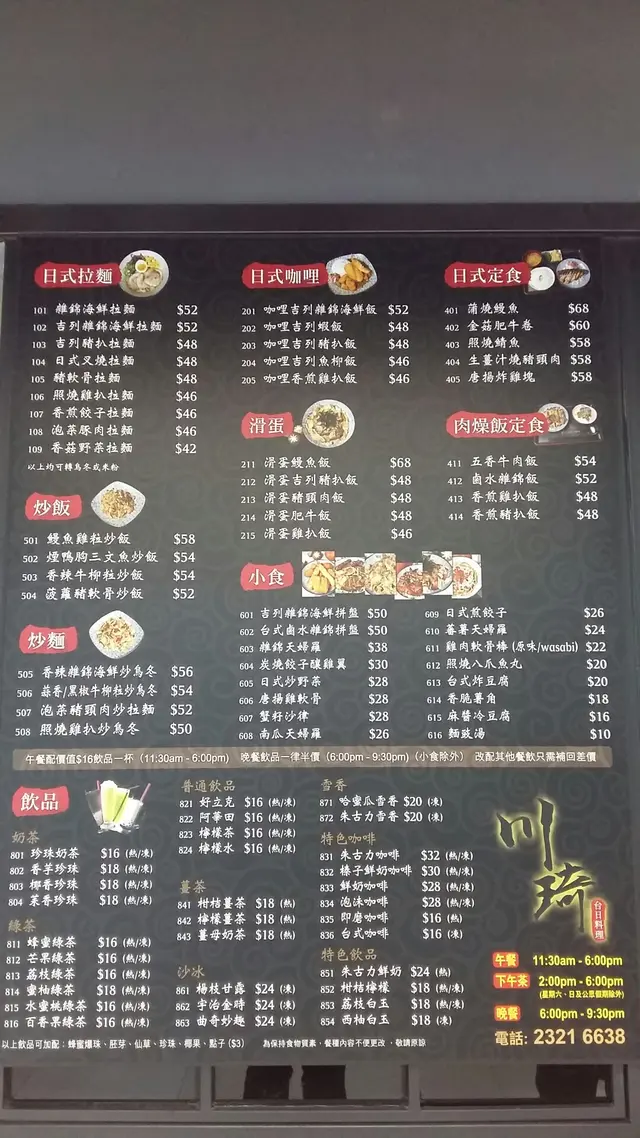 日式拉麵
101 雜錦海鮮拉麵 $52
102 吉列雜錦海鮮拉麵 $52
103 吉列豬扒拉麵 $48
104 日式叉燒拉麵 $48
105 豬軟骨拉麵 $48
106 照燒雞扒拉麵 $46
107 香煎餃子拉麵 $46
108 泡菜豚肉拉麵 $46
109 香菇野菜拉麵 $42
以上均可轉烏冬或米粉
炒飯
501 鰻魚雞粒炒飯 $58
502 煙鴨胸三文魚炒飯 $54
503 香辣牛柳粒炒飯 $54
504 菠蘿豬軟骨炒飯 $52
炒麵
505 香辣雜錦海鮮炒烏冬 $56
506 蒜香/黑椒牛柳粒炒烏冬 $54
507 泡菜豬頸肉炒拉麵 $52
508 照燒雞扒炒烏冬 $50
日式咖哩
201 咖哩吉列雜錦海鮮飯 $52
202 咖哩吉列蝦飯 $48
203 咖哩吉列豬扒飯 $48
204 咖哩吉列魚柳飯 $46
205 咖哩香煎雞扒飯 $46
滑蛋
211 滑蛋鰻魚飯 $68
212 滑蛋吉列豬扒飯 $48
213 滑蛋豬頸肉飯 $48
214 滑蛋肥牛飯 $48
215 滑蛋雞扒飯 $46
日式定食
401 蒲燒鰻魚 $68
402 金菇肥牛卷 $60
403 照燒鯖魚 $58
404 生薑汁燒豬頸肉 $58
405 唐揚炸雞塊 $58
肉燥飯定食
411 五香牛肉飯 $54
412 鹵水雜錦飯 $52
413 香煎雞扒飯 $48
414 香煎豬扒飯 $48
小食
601 吉列雜錦海鮮拼盤 $50
602 台式鹵水雜錦拼盤 $50
603 雜錦天婦羅 $38
604 炭燒餃子釀雞翼 $30
605 日式炒野菜 $28
606 唐揚雞軟骨 $28
607 蟹籽沙律 $28
608 南瓜天婦羅 $26
609 日式煎餃子 $26
610 蕃薯天婦羅 $24
611 雞肉軟骨棒 (原味/wasabi) $22
612 照燒八爪魚丸 $20
613 台式炸豆腐 $20
614 香脆薯角 $18
615 麻醬冷豆腐 $16
616 麵豉湯 $10
午餐配價值$16飲品一杯 (11:30am - 6:00pm) 晚餐飲品一律半價 (6:00pm - 9:30pm) (小食除外) 改配其他餐飲只需補回差價
飲品
奶茶
801 珍珠奶茶 $16 (熱/凍)
802 香芋珍珠 $18 (熱/凍)
803 椰香珍珠 $18 (熱/凍)
804 茉香珍珠 $18 (熱/凍)
綠茶
811 蜂蜜綠茶 $16 (熱/凍)
812 芒果綠茶 $16 (熱/凍)
813 荔枝綠茶 $16 (熱/凍)
814 蜜柚綠茶 $18 (熱/凍)
815 水蜜桃綠茶 $16 (熱/凍)
816 百香果綠茶 $16 (熱/凍)
普通飲品
821 好立克 $16 (熱/凍)
822 阿華田 $16 (熱/凍)
823 檸檬茶 $16 (熱/凍)
824 檸檬水 $16 (熱/凍)
薑茶
841 柑桔薑茶 $18 (熱)
842 檸檬薑茶 $18 (熱)
843 薑母奶茶 $18 (熱)
沙冰
861 楊枝甘露 $24 (凍)
862 宇治金時 $24 (凍)
863 曲奇炒趣 $24 (凍)
雪香
871 哈蜜瓜雪香 $20 (凍)
872 朱古力雪香 $20 (凍)
特色咖啡
831 朱古力咖啡 $32 (熱/凍)
832 榛子鮮奶咖啡 $30 (熱/凍)
833 鮮奶咖啡 $28 (熱/凍)
834 泡沫咖啡 $28 (熱/凍)
835 即磨咖啡 $16 (熱)
836 台式咖啡 $16 (凍)
特色飲品
851 朱古力鮮奶 $24 (熱)
852 柑桔檸檬 $18 (熱/凍)
853 荔枝白玉 $18 (熱/凍)
854 西柚白玉 $18 (凍)
川琦
台日料理
午餐 11:30am - 6:00pm
下午茶 2:00pm - 6:00pm
(星期六、日及公眾假期除外)
晚餐 6:00pm - 9:30pm
電話: 2321 6638
以上飲品可加配: 蜂蜜爆珠、胚芽、仙草、珍珠、椰果、點子 ($3) 為保持食物質素,餐種內容不便更改,敬請原諒